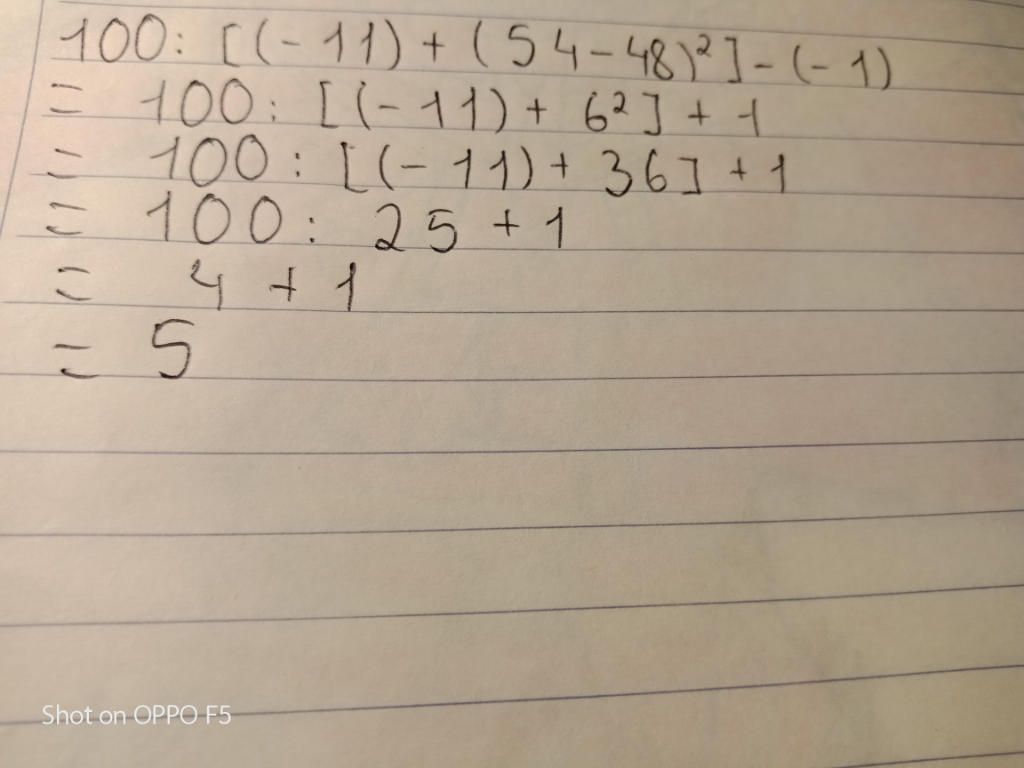 100: [(-11) + (54-48)²] - (-1)
= 100: [(-11) + 6²] + 1
= 100: [(-11) + 36] + 1
= 100: 25 + 1
= 4 + 1
= 5
Shot on OPPO F5